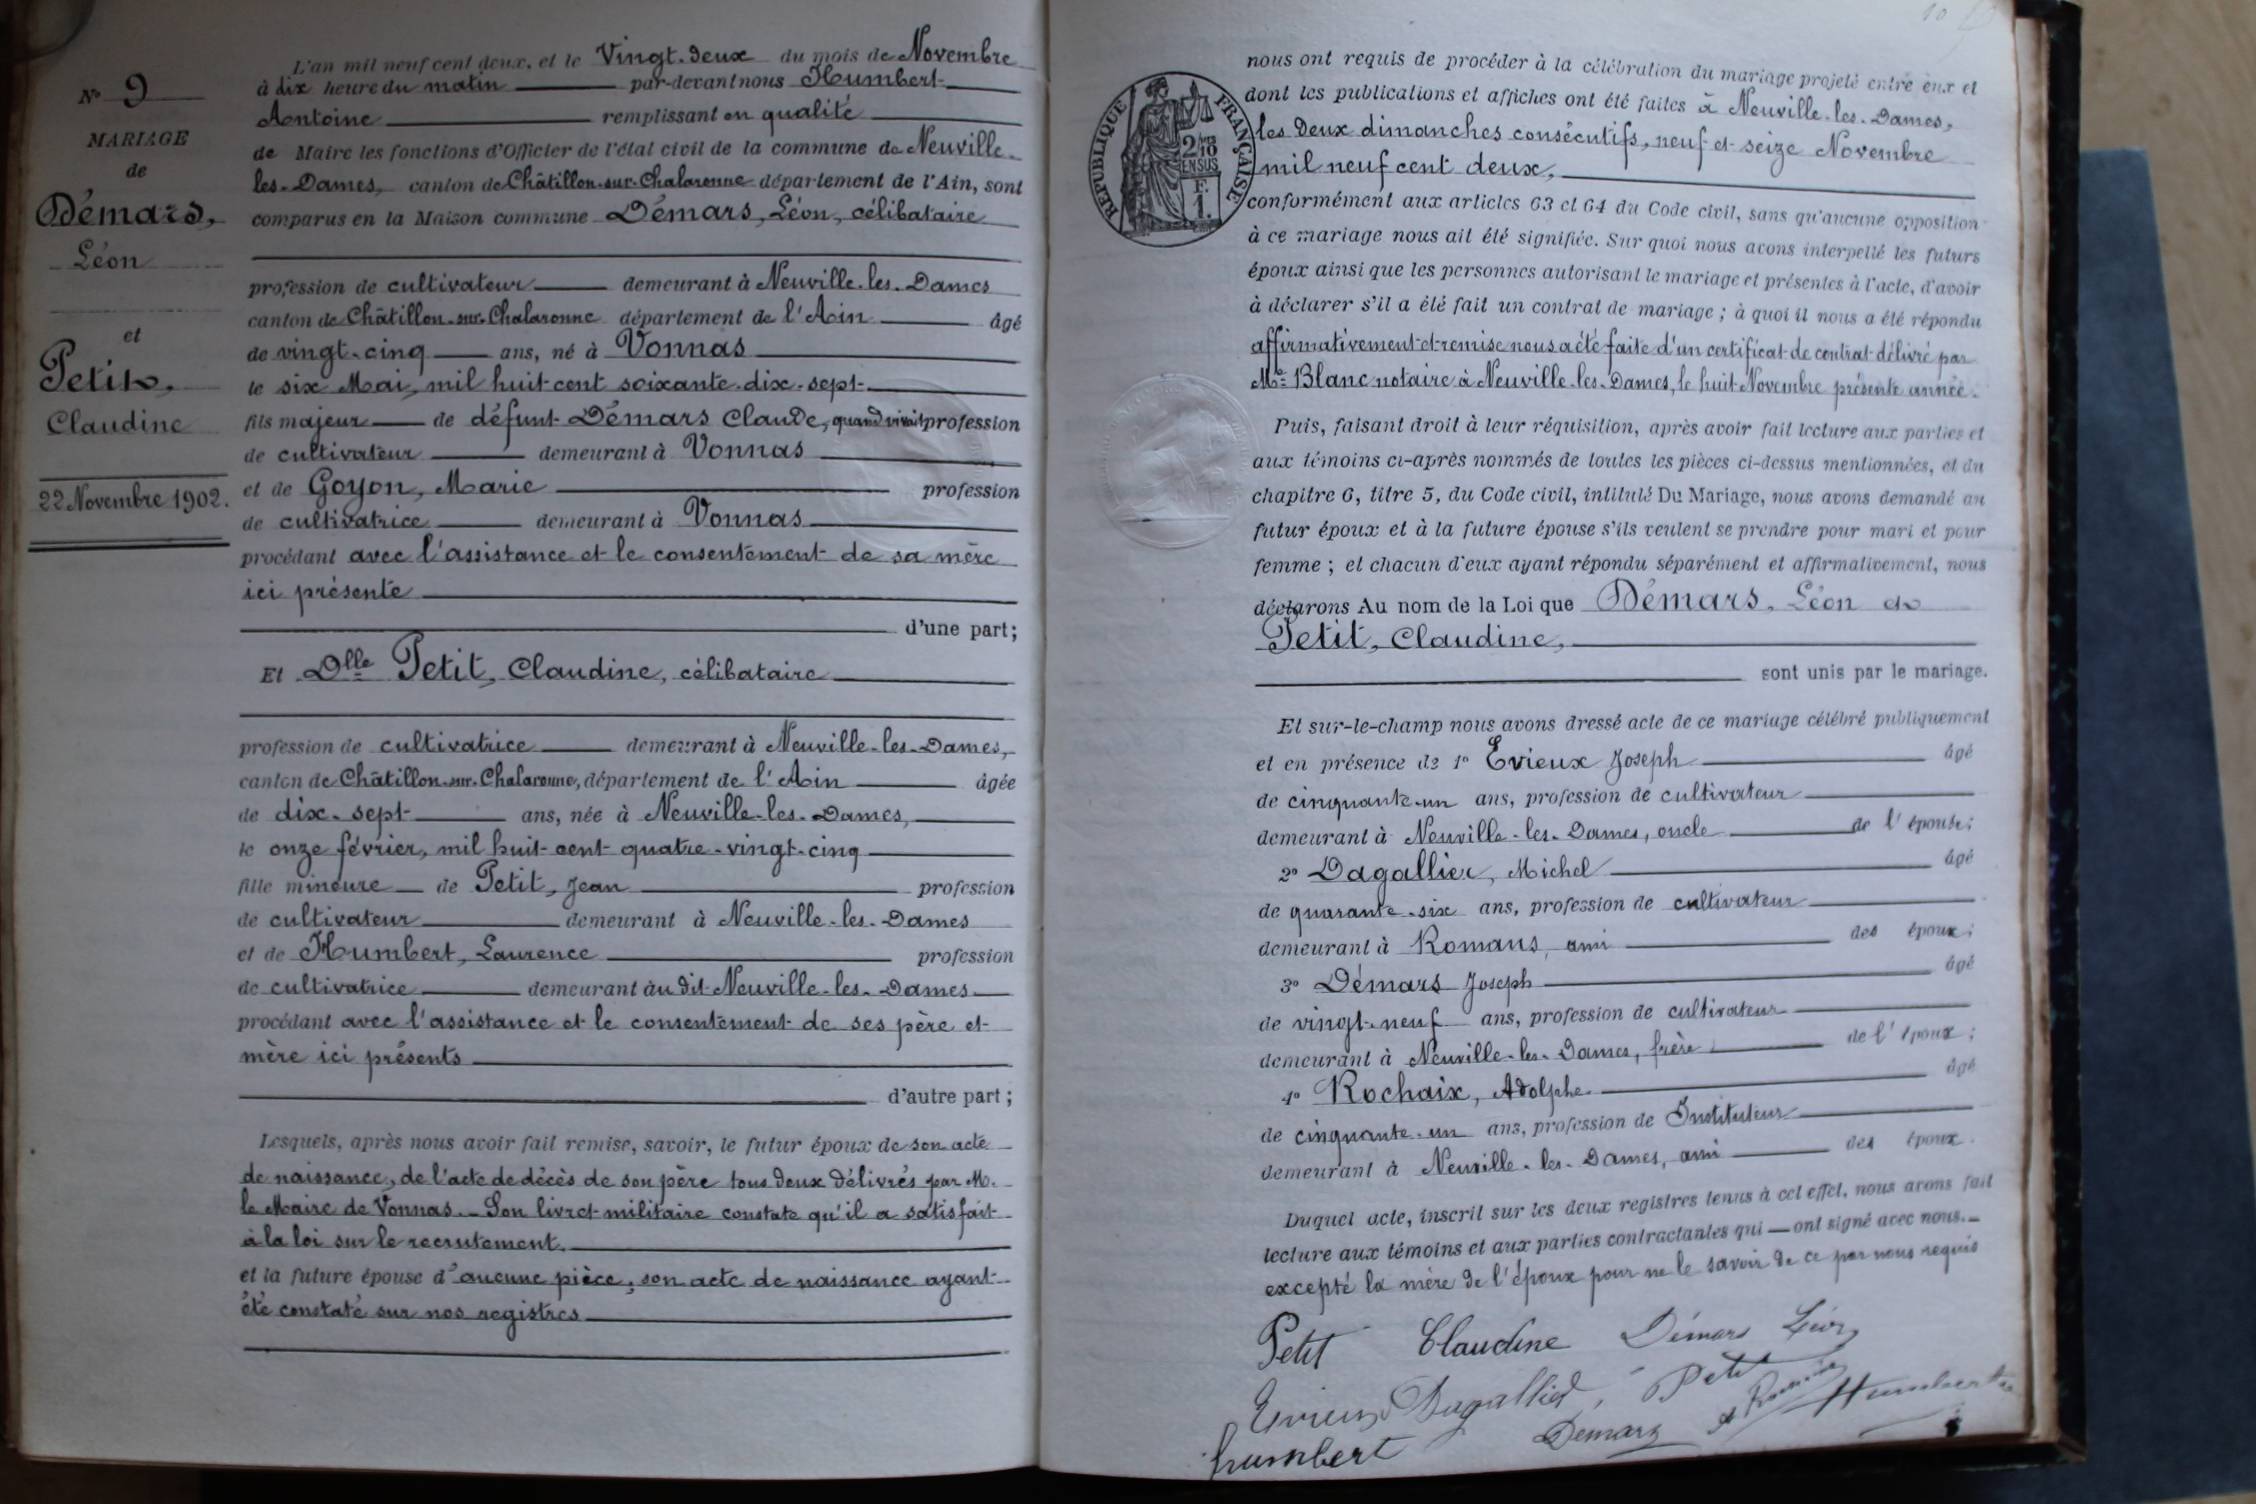 N° 9
MARIAGE
de
Démars,
Léon
et
Petit,
Claudine
22 Novembre 1902.
L'an mil neuf cent deux, et le Vingt-deux du mois de Novembre
à dix heure du matin par-devant nous Humbert
Antoine remplissant en qualité
de Maire les fonctions d'Officier de l'état civil de la commune de Neuville-
les-Dames, canton de Châtillon-sur-Chalaronne département de l'Ain, sont
comparus en la Maison commune Démars, Léon, célibataire
profession de cultivateur demeurant à Neuville-les-Dames
canton de Châtillon-sur-Chalaronne département de l'Ain âgé
de vingt-cinq ans, né à Vonnas
le six Mai, mil huit cent soixante-dix-sept
fils majeur de défunt Démars Claude, quand vivait profession
de cultivateur demeurant à Vonnas
et de Goyon, Marie profession
de cultivatrice demeurant à Vonnas
procédant avec l'assistance et le consentement de sa mère
ici présente
d'une part;
Et Dlle Petit, Claudine, célibataire
profession de cultivatrice demeurant à Neuville-les-Dames,
canton de Châtillon-sur-Chalaronne, département de l'Ain âgée
de dix-sept ans, née à Neuville-les-Dames,
le onze février, mil huit cent quatre-vingt-cinq
fille mineure de Petit, Jean profession
de cultivateur demeurant à Neuville-les-Dames
et de Humbert, Laurence profession
de cultivatrice demeurant àu dit Neuville-les-Dames
procédant avec l'assistance et le consentement de ses père et
mère ici présents
d'autre part;
Lesquels, après nous avoir fait remise, savoir, le futur époux de son acte
de naissance, de l'acte de décès de son père tous deux délivrés par M.
le Maire de Vonnas. Son livret militaire constate qu'il a satisfait
à la loi sur le recrutement.
et la future épouse d'aucune pièce, son acte de naissance ayant
été constaté sur nos registres
10
RÉPUBLIQUE FRANÇAISE
2/10
EN SUS
F.
1.
nous ont requis de procéder à la célébration du mariage projeté entre eux et
dont les publications et affiches ont été faites à Neuville-les-Dames,
les deux dimanches consécutifs, neuf et seize Novembre
mil neuf cent deux,
conformément aux articles 63 et 64 du Code civil, sans qu'aucune opposition
à ce mariage nous ait été signifiée. Sur quoi nous avons interpellé les futurs
époux ainsi que les personnes autorisant le mariage et présentes à l'acte, d'avoir
à déclarer s'il a été fait un contrat de mariage; à quoi il nous a été répondu
affirmativement et remise nous a été faite d'un certificat de contrat délivré par
Me Blanc notaire à Neuville-les-Dames, le huit Novembre présente année.
Puis, faisant droit à leur réquisition, après avoir fait lecture aux parties et
aux témoins ci-après nommés de toutes les pièces ci-dessus mentionnées, et du
chapitre 6, titre 5, du Code civil, intitulé Du Mariage, nous avons demandé au
futur époux et à la future épouse s'ils veulent se prendre pour mari et pour
femme; et chacun d'eux ayant répondu séparément et affirmativement, nous
déclarons Au nom de la Loi que Démars, Léon et
Petit, Claudine,
sont unis par le mariage.
Et sur-le-champ nous avons dressé acte de ce mariage célébré publiquement
et en présence de 1° Evieux Joseph âgé
de cinquante-un ans, profession de cultivateur
demeurant à Neuville-les-Dames, oncle de l'épouse;
2° Dagallier, Michel âgé
de quarante-six ans, profession de cultivateur
demeurant à Romans, ami des époux;
3° Démars Joseph âgé
de vingt-neuf ans, profession de cultivateur
demeurant à Neuville-les-Dames, frère de l'époux;
4° Rochaix, Adolphe âgé
de cinquante-un ans, profession de Instituteur
demeurant à Neuville-les-Dames, ami des époux.
Duquel acte, inscrit sur les deux registres tenus à cet effet, nous avons fait
lecture aux témoins et aux parties contractantes qui ont signé avec nous.
excepté la mère de l'époux pour ne le savoir de ce par nous requis
Petit Claudine Démars Léon
Evieux Dagallier, Petit Humbert
humbert Demars